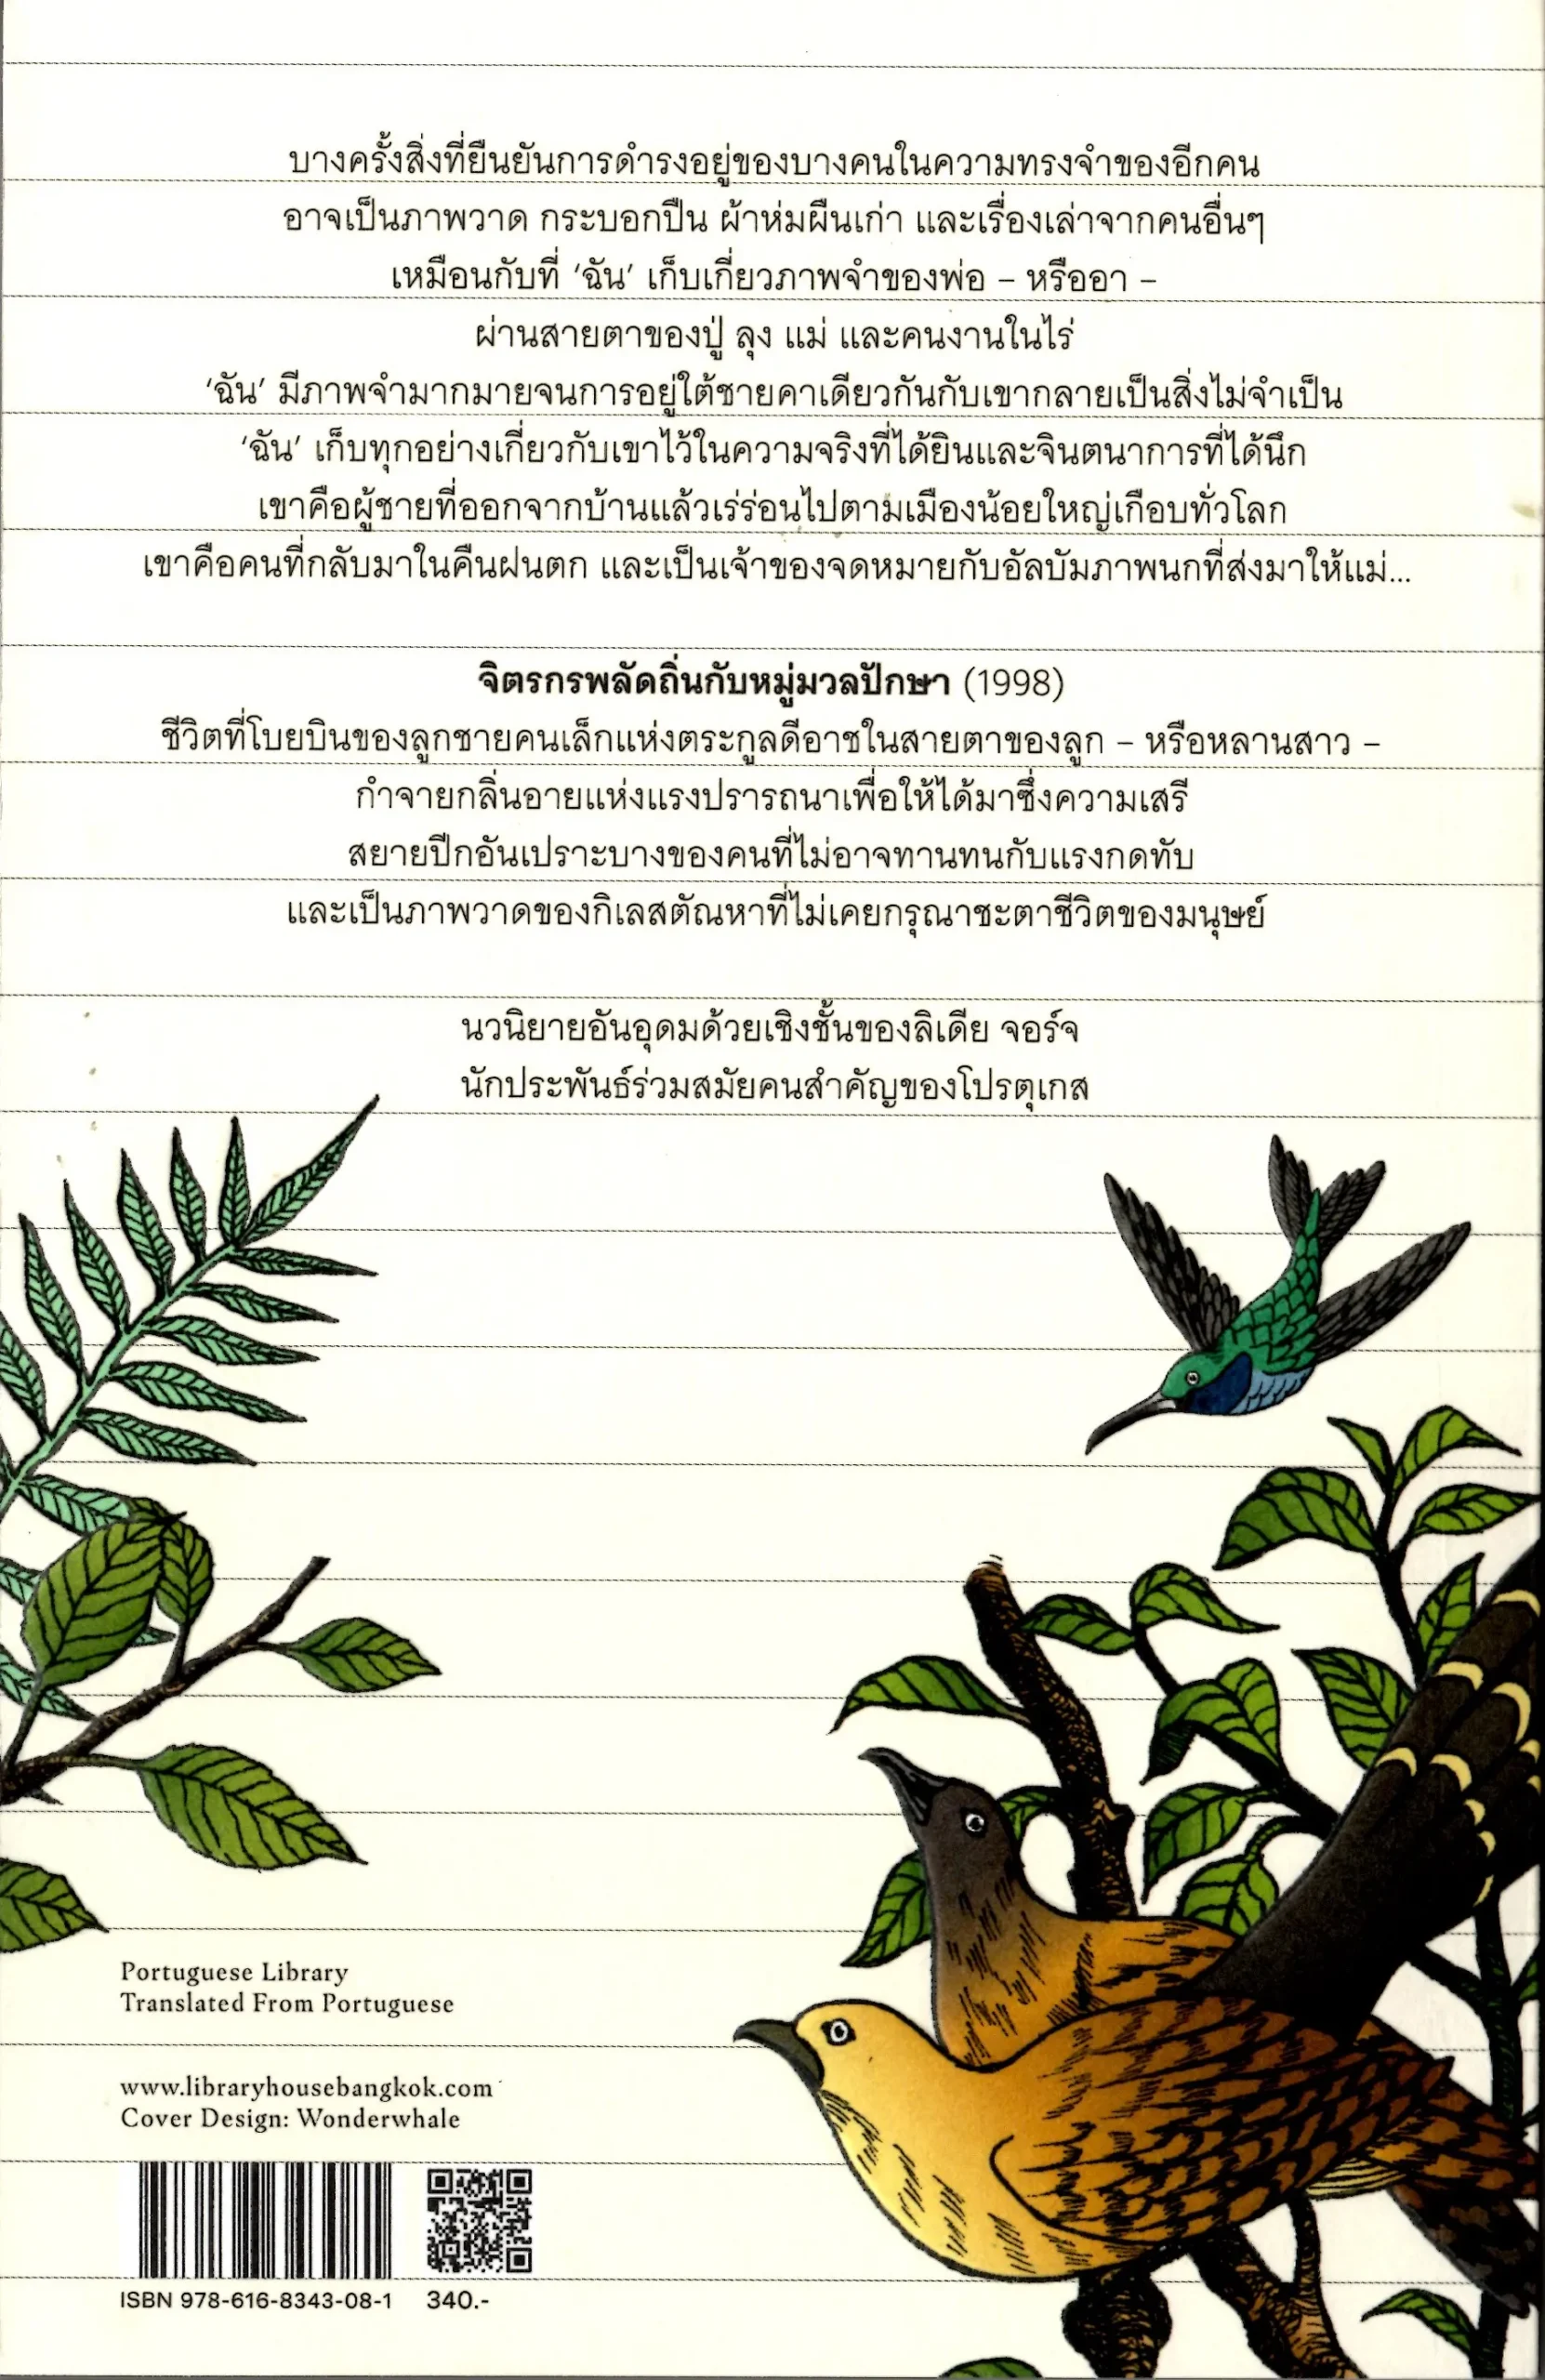 บางครั้งสิ่งที่ยืนยันการดำรงอยู่ของบางคนในความทรงจำของอีกคน
อาจเป็นภาพวาด กระบอกปืน ผ้าห่มผืนเก่า และเรื่องเล่าจากคนอื่นๆ
เหมือนกับที่ ‘ฉัน’ เก็บเกี่ยวภาพจำของพ่อ – หรืออา –
ผ่านสายตาของปู่ ลุง แม่ และคนงานในไร่
‘ฉัน’ มีภาพจำมากมายจนการอยู่ใต้ชายคาเดียวกันกับเขากลายเป็นสิ่งไม่จำเป็น
‘ฉัน’ เก็บทุกอย่างเกี่ยวกับเขาไว้ในความจริงที่ได้ยินและจินตนาการที่ได้นึก
เขาคือผู้ชายที่ออกจากบ้านแล้วเร่ร่อนไปตามเมืองน้อยใหญ่เกือบทั่วโลก
เขาคือคนที่กลับมาในคืนฝนตก และเป็นเจ้าของจดหมายกับอัลบัมภาพนกที่ส่งมาให้แม่...
จิตรกรพลัดถิ่นกับหมู่มวลปักษา (1998)
ชีวิตที่โบยบินของลูกชายคนเล็กแห่งตระกูลดีอาชในสายตาของลูก – หรือหลานสาว –
กำจายกลิ่นอายแห่งแรงปรารถนาเพื่อให้ได้มาซึ่งความเสรี
สยายปีกอันเปราะบางของคนที่ไม่อาจทานทนกับแรงกดทับ
และเป็นภาพวาดของกิเลสตัณหาที่ไม่เคยกรุณาชะตาชีวิตของมนุษย์
นวนิยายอันอุดมด้วยเชิงชั้นของลิเดีย จอร์จ
นักประพันธ์ร่วมสมัยคนสำคัญของโปรตุเกส
Portuguese Library
Translated From Portuguese
www.libraryhousebangkok.com
Cover Design: Wonderwhale
ISBN 978-616-8343-08-1 340.-